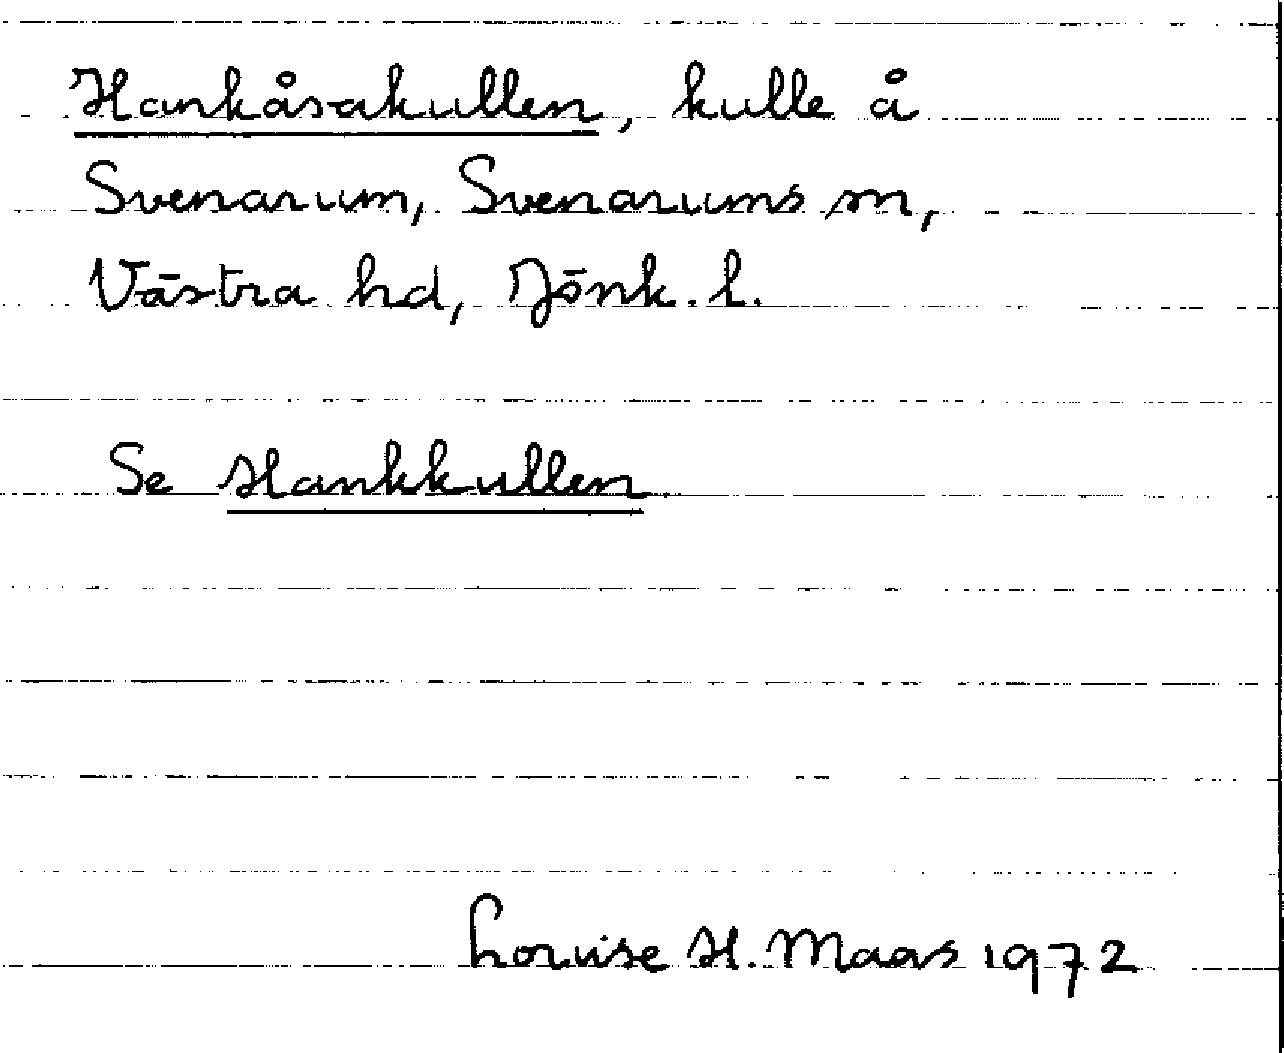 Hankåsakullen, kulle å
Svenarum, Svenarums sn,
Västra hd, Jönk. l.
Se Hankkullen.
Louise H. Maas 1972